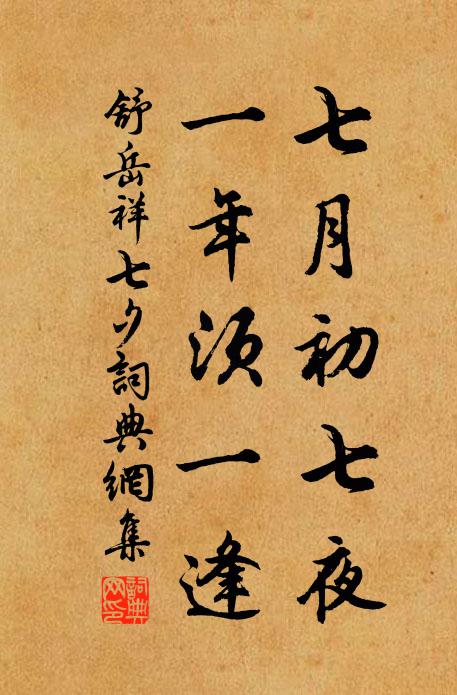 七月初七夜
一年須一逢
舒岳祥七夕詞典網集
詞典網印